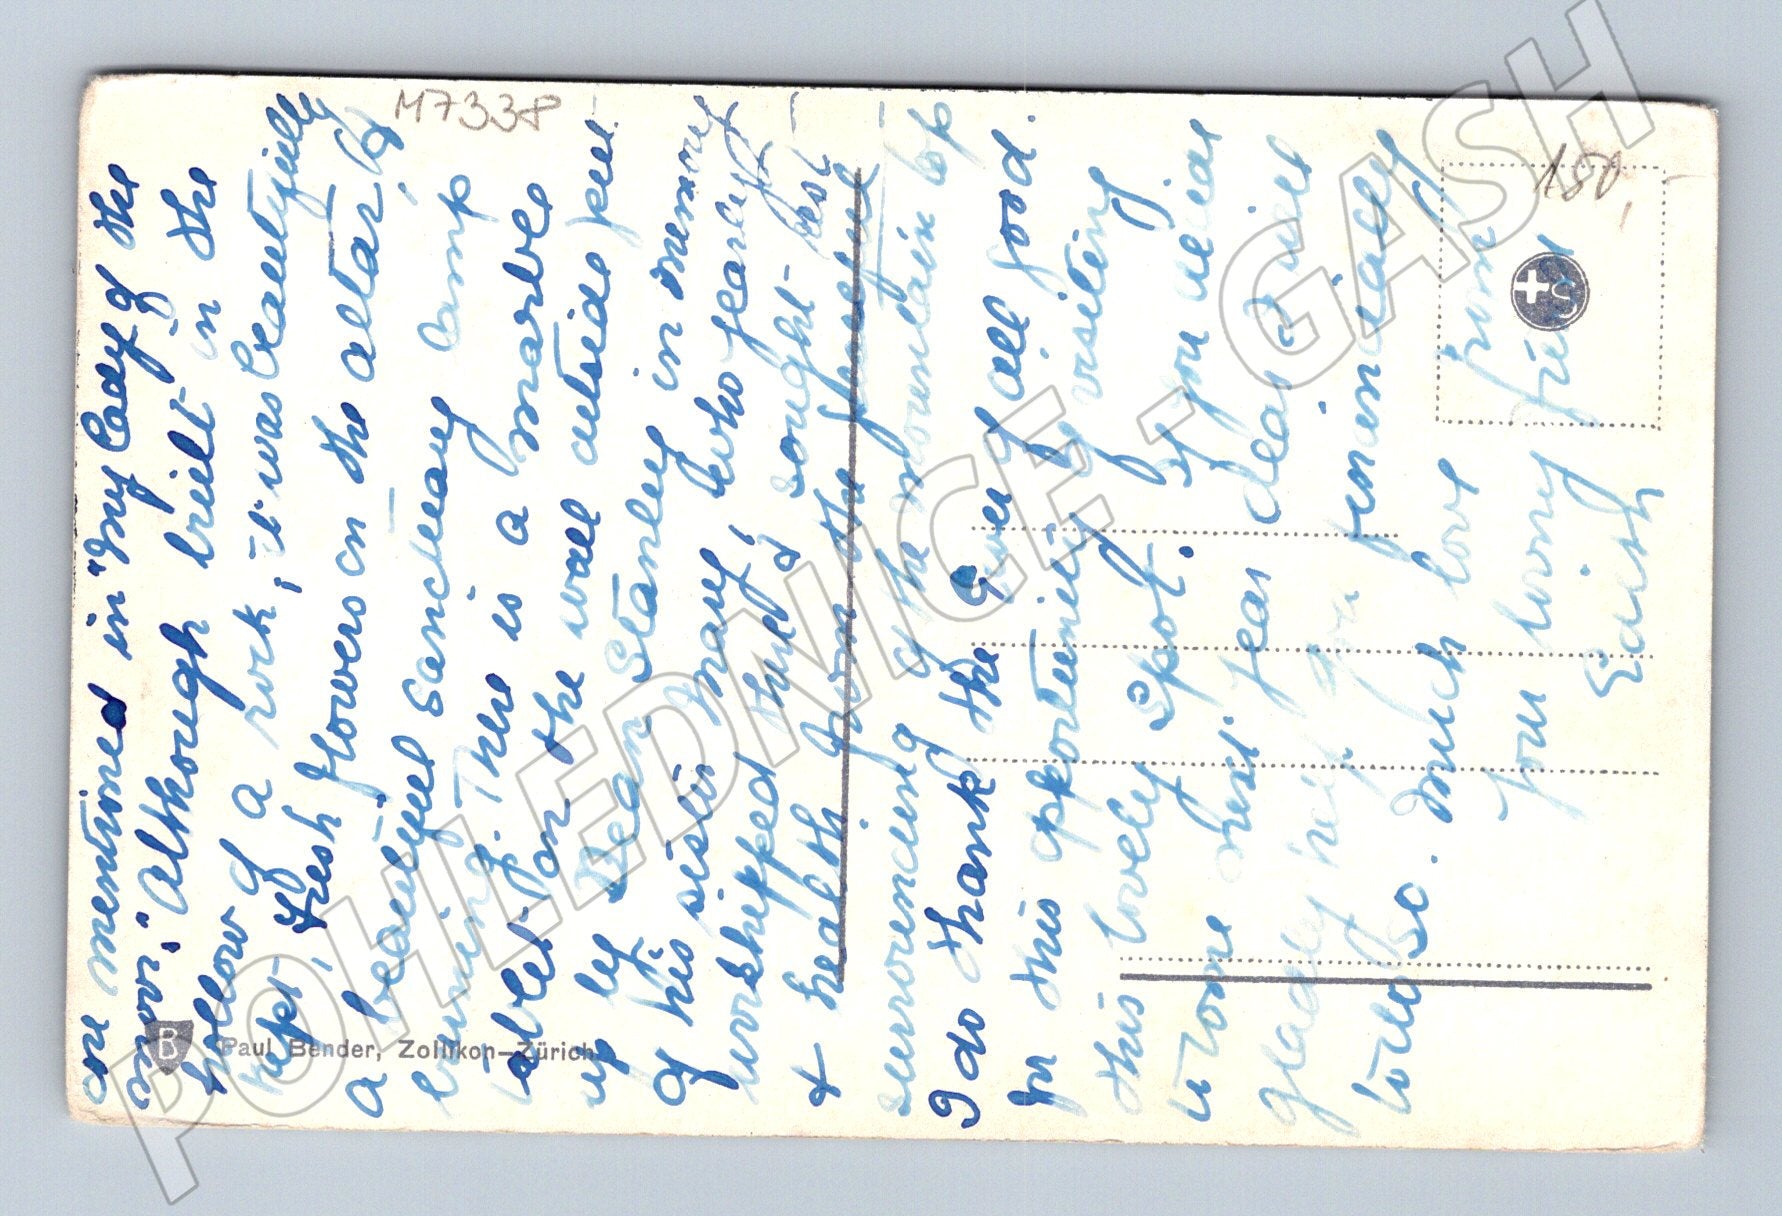 one mentioned in "My Lady of the
Snow". Although built in the
hollow of a rock, it was beautifully
kept, fresh flowers on the altar, &
a beautiful sanctuary lamp
burning. There is a marble
tablet on the wall outside put
up by Dean Stanley in memory
of his sister Mary, who yearly
worshipped there & sought rest
& health from the
surrounding of the mountain top
I do thank the Giver of all good
for this opportunity of visiting
this lovely spot. If you
come next year dear I will
gladly help you financially
to do so. Much love from
your loving friend
Edith
M7338
150,
B
Paul Bender, Zollikon–Zürich
POHLEDNICE - GASH